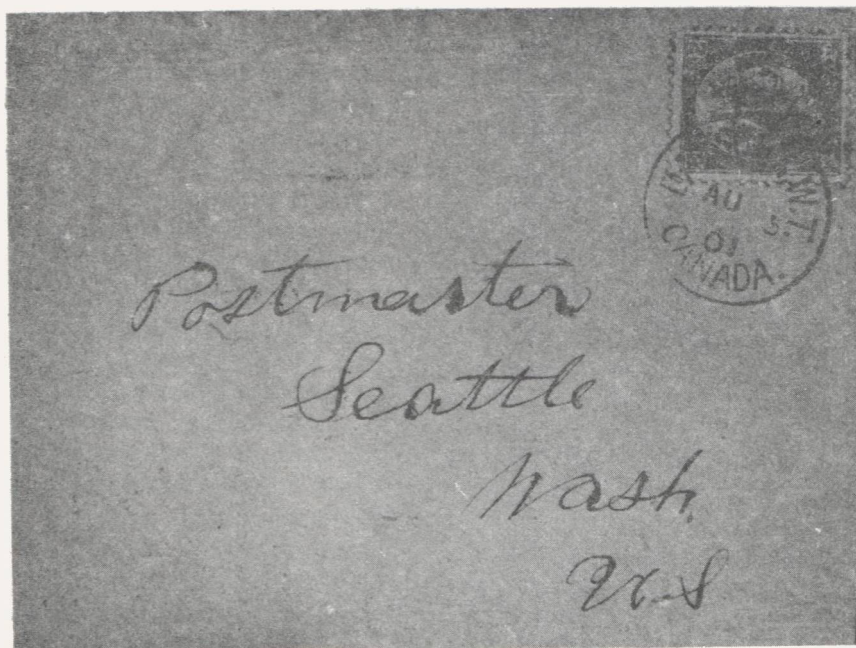 N.T.
AU 5
01
CANADA.
Postmaster
Seattle
Wash
U.S